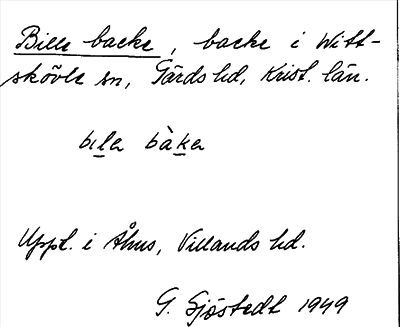 Bille backe, backe i Witt-
skövle sn, Gärds hd, Krist. län.
bıla bàka
Uppt. i Åhus, Villands hd.
G. Sjöstedt 1949